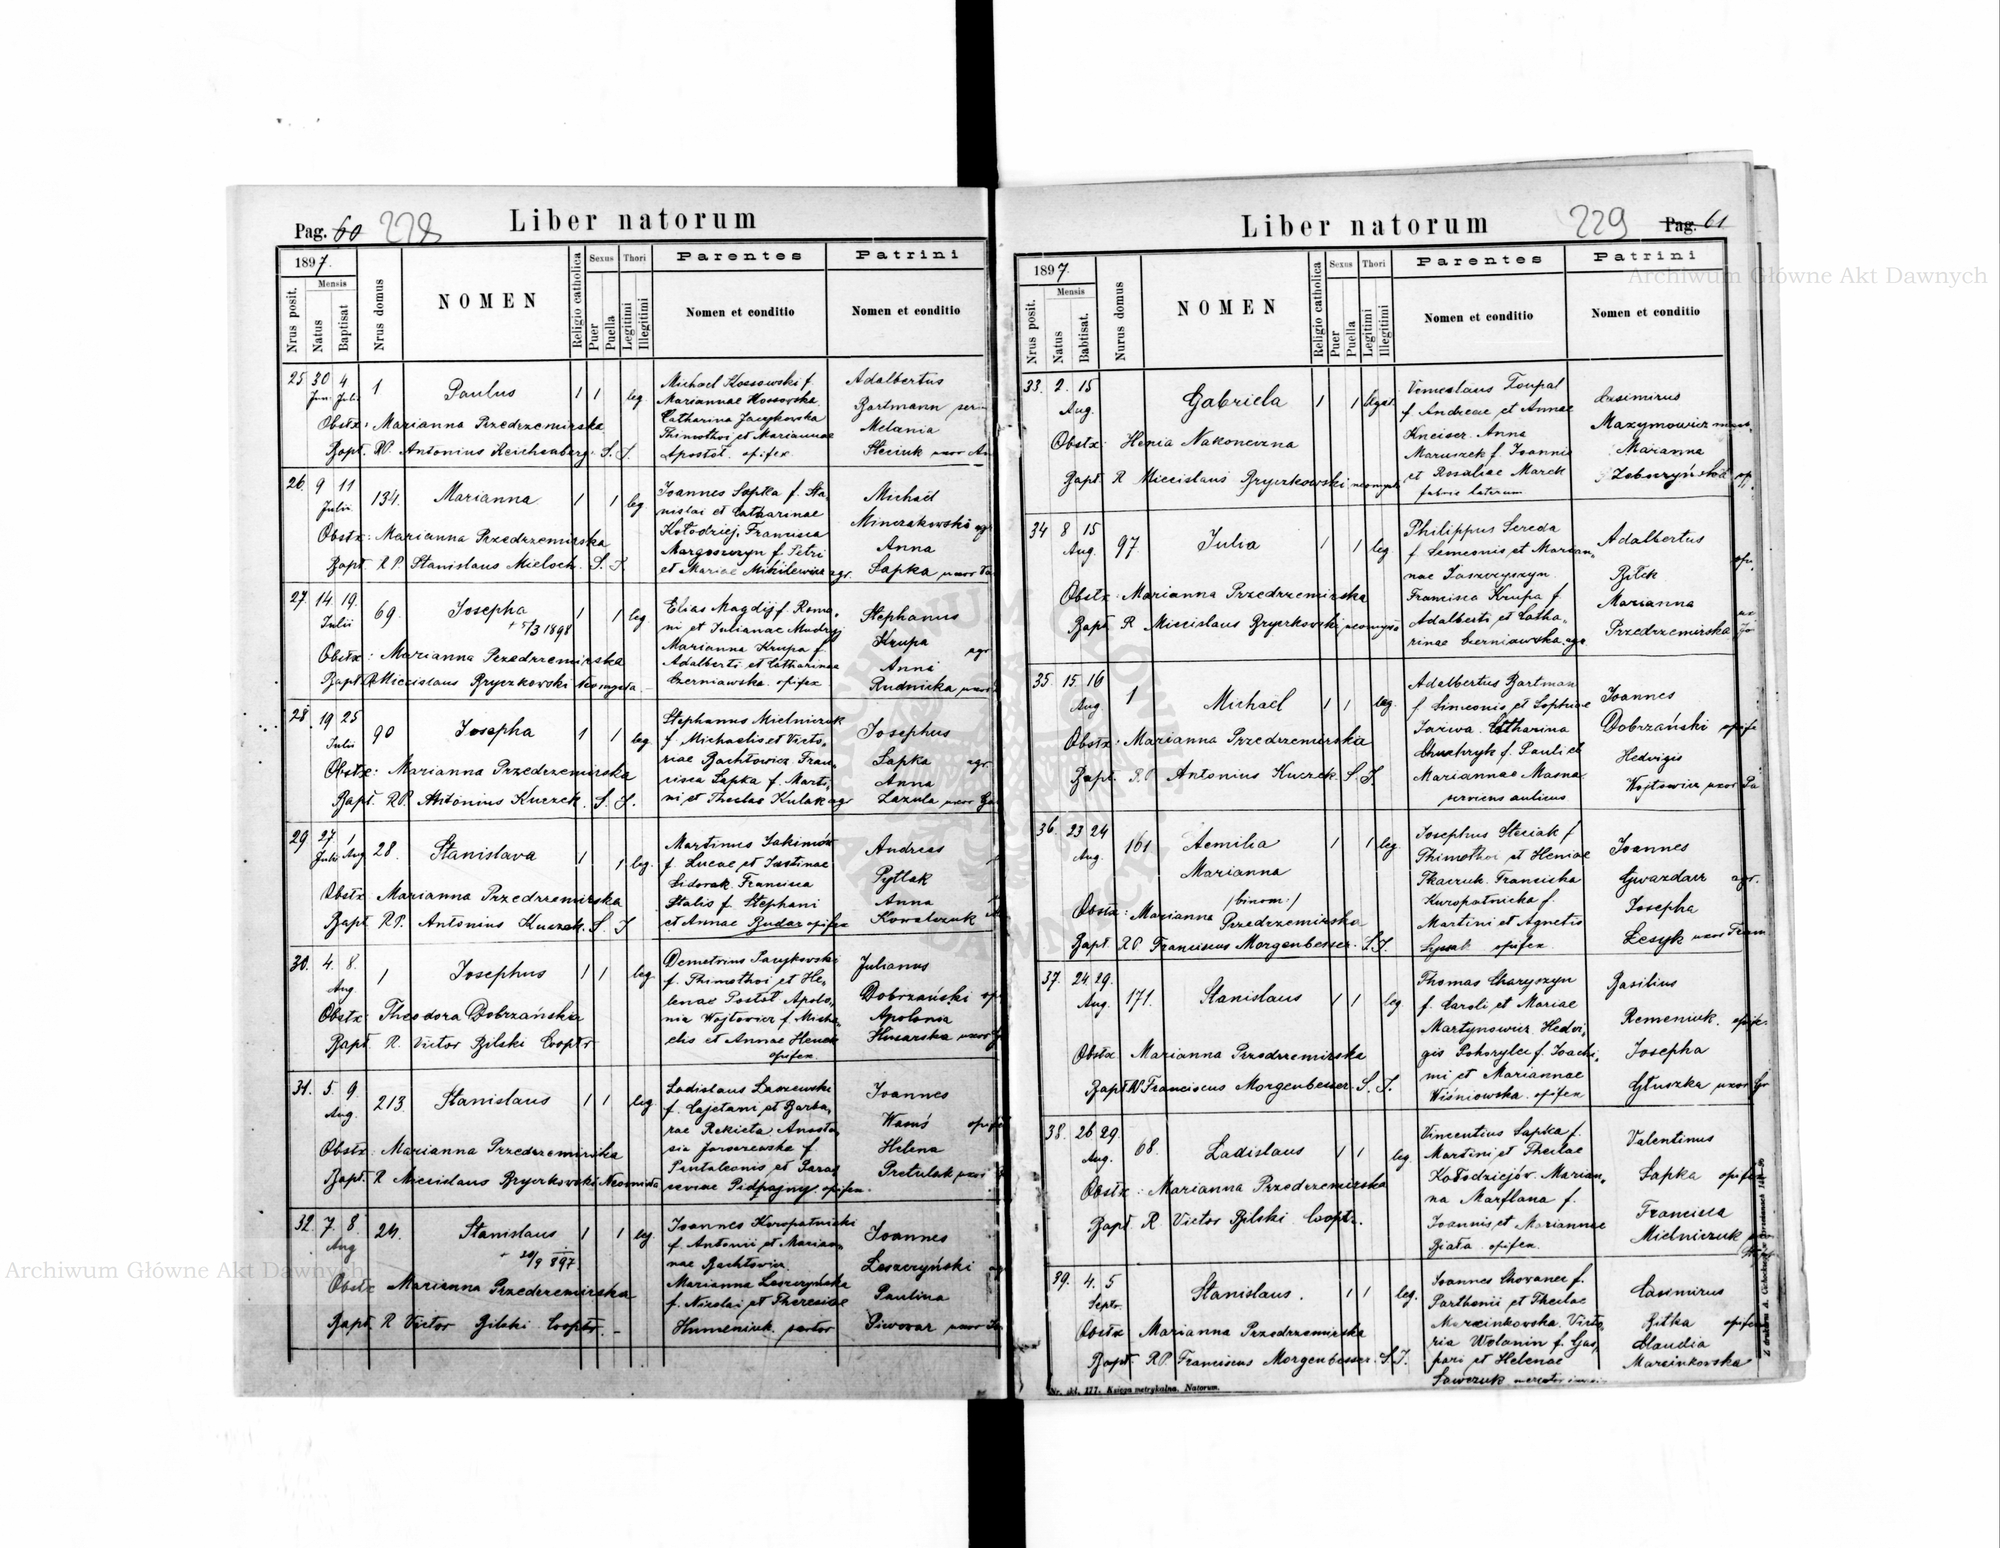 Pag. 60 228 Liber natorum
1897.
Nrus posit.
Mensis
Natus
Baptisat
Nrus domus
NOMEN
Religio catholica
Sexus
Puer
Puella
Thori
Legitimi
Illegitimi
Parentes
Nomen et conditio
Patrini
Nomen et conditio
25 30 Jun. 4 Juli 1 Paulus 1 1 leg.
Obstx: Marianna Przedrzemirska
Bapt. RP. Antonius Reichenberg. S. J.
Michael Kossowski f.
Mariannae Kossovska.
Catharina Jacykowska
Thimothei et Mariannae
Apostol. opifex.
Adalbertus
Bartmann
Melania
Steciuk uxor
26. 9 11 Julii. 134. Marianna 1 1 leg
Obstx: Marianna Przedrzemirska
Bapt. R P. Stanislaus Mieloch. S. J.
Joannes Sapka f. Sta-
nislai et Catharinae
Kołodziej, Francisca
Margoszczyn f. Petri
et Mariae Mikilewicz agr.
Michaël
Minczakowski agr
Anna
Sapka uxor
27. 14. 19. Julii 69. Josepha 1 1 leg.
+ 5/3 1898
Obstx: Marianna Przedrzemirska
Bapt. R Miecislaus Bryczkowski Neomysta
Elias Magdij f. Roma-
ni et Julianae Mudryj
Marianna Krupa f.
Adalberti et Catharinae
Czerniawska. opifex
Stephanus
Krupa agr
Anna
Rudnicka uxor
28. 19 25 Julii 90 Josepha 1 1 leg
Obstx: Marianna Przedrzemirska
Bapt. R.P. Antonius Kuczek. S. J.
Stephanus Mielniczuk
f. Michaelis et Victo-
riae Bachtowicz. Fran-
cisca Sapka f. Marti-
ni et Theclae Kulak agr
Josephus
Sapka agr.
Anna
Zazula uxor
29 27 Julii 1 Aug 28. Stanislava 1 1 leg.
Obstx. Marianna Przedrzemirska
Bapt. R.P. Antonius Kuczek. S. J
Martinus Jakimów
f. Lucae et Justinae
Sidorak. Francisca
Stalis f. Stephani
et Annae Budar opifex
Andreas
Pytlak
Anna
Kowalczuk
30. 4. 8. Aug. 1 Josephus 1 1 leg.
Obstx: Theodora Dobrzańska
Bapt. R. Victor Bilski Cooptr
Demetrius Jacykowski
f. Thimothei et He-
lenae Postol Apolo-
nia Wojtowicz f. Micha-
elis et Annae
opifex.
Julianus
Dobrzański
Apolonia
Husarska uxor
31. 5. 9. Aug. 213. Stanislaus 1 1 leg.
Obstx: Marianna Przedrzemirska
Bapt. R Miecislaus Bryczkowski Neomista
Ladislaus Laszewski
f. Cajetani et Barba-
rae Rekieta, Anasta-
sia Jaroszewska f.
Pantaleonis et Paras
ceviae Pidpajny. opifex.
Joannes
Waruś
Helena
Pretulak uxor
32. 7. 8. Aug 24. Stanislaus 1 1 leg.
+ 20/9 897.
Obstx Marianna Przedrzemirska
Bapt. R Victor Bilski Cooptr. -
Joannes Kuropatnicki
f. Antonii et Marian-
nae Bachtowicz.
Marianna Leszczyńska
f. Nicolai et Theresiae
Humeniuk. sartor
Joannes
Leszczyński
Paulina
Piwovar uxor
Liber natorum 229 Pag. 61
1897.
Nrus posit.
Mensis
Natus
Babtisat.
Nurus domus
NOMEN
Religio catholica
Sexus
Puer
Puella
Thori
Legitimi
Illegitimi
Parentes
Nomen et conditio
Patrini
Nomen et conditio
33. 2. 15 Aug. Gabriela 1 1 legit.
Obstx: Henia Nakoneczna
Bapt. R Miecislaus Bryczkowski neomysta
Venceslaus Toupal
f. Andreae et Annae
Kneiser. Anna
Maruszek f. Joannis
et Rosaliae Marek
fabric laterum
Casimirus
Maxymowicz
Marianna
34 8 15 Aug. 97 Julia 1 1 leg
Obstx: Marianna Przedrzemirska
Bapt R Miecislaus Bryczkowski neomysta
Philippus Sereda
f. Simeonis et Marian-
nae Jaszczyszyn.
Francisca Krupa f
Adalberti et Catha-
rinae Czerniawska agr
Adalbertus
Biłek
Marianna
Przedrzemirska
35. 15. 16 Aug. 1 Michaël 1 1 leg.
Obstx: Marianna Przedrzemirska
Bapt. R.P. Antonius Kuczek. S. J.
Adalbertus Bartman
f. Simeonis et Sophiae
Catharina
f. Pauli et
Mariannae Masna
serviens aulicus
Joannes
Dobrzański opifex
Hedvigis
Wojtowicz uxor
36. 23 24 Aug. 161 Aemilia 1 1 leg
Marianna
/binom:/
Obstx: Marianna Przedrzemirska
Bapt. R P. Franciscus Morgenbesser. S. J.
Josephus Steciak f
Thimothei et Heniae
Tkaczuk. Francisca
Kuropatnicka f.
Martini et Agnetis
opifex
Joannes
Gwazdacz agr.
Josepha
Lesyk uxor
37. 24. 29. Aug. 171. Stanislaus 1 1 leg.
Obstx Marianna Przedrzemirska
Bapt RP Franciscus Morgenbesser. S. J.
Thomas Charyszyn
f. Caroli et Mariae
Martynowicz Hedvi-
gis Pohoryles f. Joachi-
mi et Mariannae
Wiśniowska. opifex
Basilius
Remeniuk. opifex
Josepha
Głuszka uxor
38. 26 29. Aug. 68. Ladislaus 1 1 leg.
Obstx: Marianna Przedrzemirska
Bapt R Victor Bilski Cooptr.
Vincentius Sapka f.
Martini et Theclae
Kołodziejów. Marian-
na Marflana f.
Joannis et Mariannae
Biała. opifex.
Valentinus
Sapka opifex
Francisca
Mielniczuk
39. 4. 5 Septr. Stanislaus. 1 1 leg.
Obstx Marianna Przedrzemirska
Bapt. RP. Franciscus Morgenbesser. S. J.
Joannes Chovanec f.
Parthenii et Theclae
Marcinkowska. Victo-
ria Wolanin f. Gas-
pari et Helenae
Sawczuk mercator
Casimirus
Bitka opifex
Claudia
Marcinkovska
Nr. skł. 177. Księga metrykalna. Natorum.
Archiwum Główne Akt Dawnych
Archiwum Główne Akt Dawnych